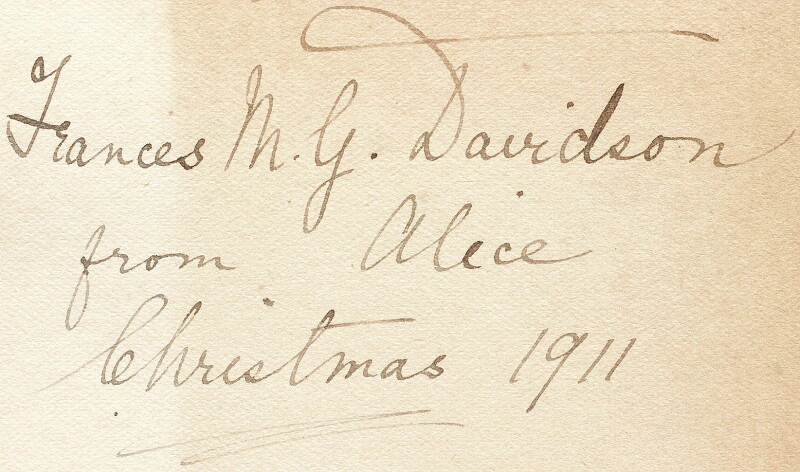 Frances M. G. Davidson
from Alice
Christmas 1911